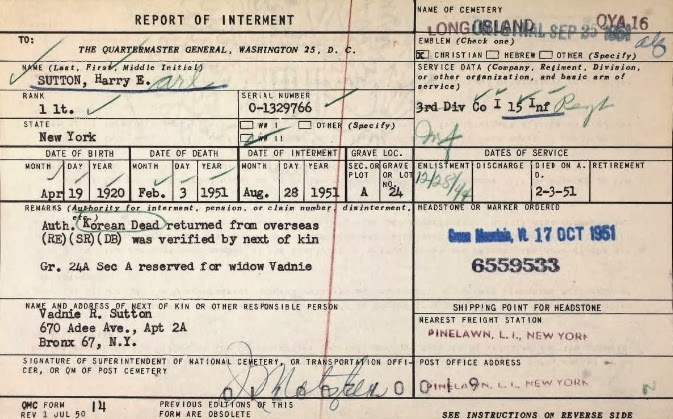 REPORT OF INTERMENT
NAME OF CEMETERY
LONG ISLAND
ORIGINAL SEP 25 1951
QYA 16
TO:
THE QUARTERMASTER GENERAL, WASHINGTON 25, D. C.
EMBLEM (Check one)
X CHRISTIAN HEBREW OTHER (Specify)
NAME (Last, First, Middle Initial)
SUTTON, Harry E. arl
SERVICE DATA (Company, Regiment, Division, or other organization, and basic arm of service)
3rd Div Co I 15 Inf Regt
Inf
RANK
1 lt.
SERIAL NUMBER
O-1329766
STATE
New York
WW I OTHER (Specify)
WW II
DATE OF BIRTH
MONTH DAY YEAR
Apr 19 1920
DATE OF DEATH
MONTH DAY YEAR
Feb. 3 1951
DATE OF INTERMENT
MONTH DAY YEAR
Aug. 28 1951
GRAVE LOC.
SEC. OR PLOT
A
GRAVE OR LOT NO.
24
DATES OF SERVICE
ENLISTMENT DISCHARGE DIED ON A. D. RETIREMENT
12/28/44
2-3-51
REMARKS (Authority for interment, pension, or claim number, disinterment, etc.)
Auth. Korean Dead returned from overseas
(RE)(SR)(DB) was verified by next of kin
Gr. 24A Sec A reserved for widow Vadnie
HEADSTONE OR MARKER ORDERED
Green Mountain, Vt. 17 OCT 1951
6559533
NAME AND ADDRESS OF NEXT OF KIN OR OTHER RESPONSIBLE PERSON
Vadnie R. Sutton
670 Adee Ave., Apt 2A
Bronx 67, N.Y.
SHIPPING POINT FOR HEADSTONE
NEAREST FREIGHT STATION
PINELAWN, L. I., NEW YORK
SIGNATURE OF SUPERINTENDENT OF NATIONAL CEMETERY, OR TRANSPORTATION OFFICER, OR QM OF POST CEMETERY
POST OFFICE ADDRESS
PINELAWN, L. I., NEW YORK
QMC FORM 14
REV 1 JUL 50
PREVIOUS EDITIONS OF THIS
FORM ARE OBSOLETE
SEE INSTRUCTIONS ON REVERSE SIDE